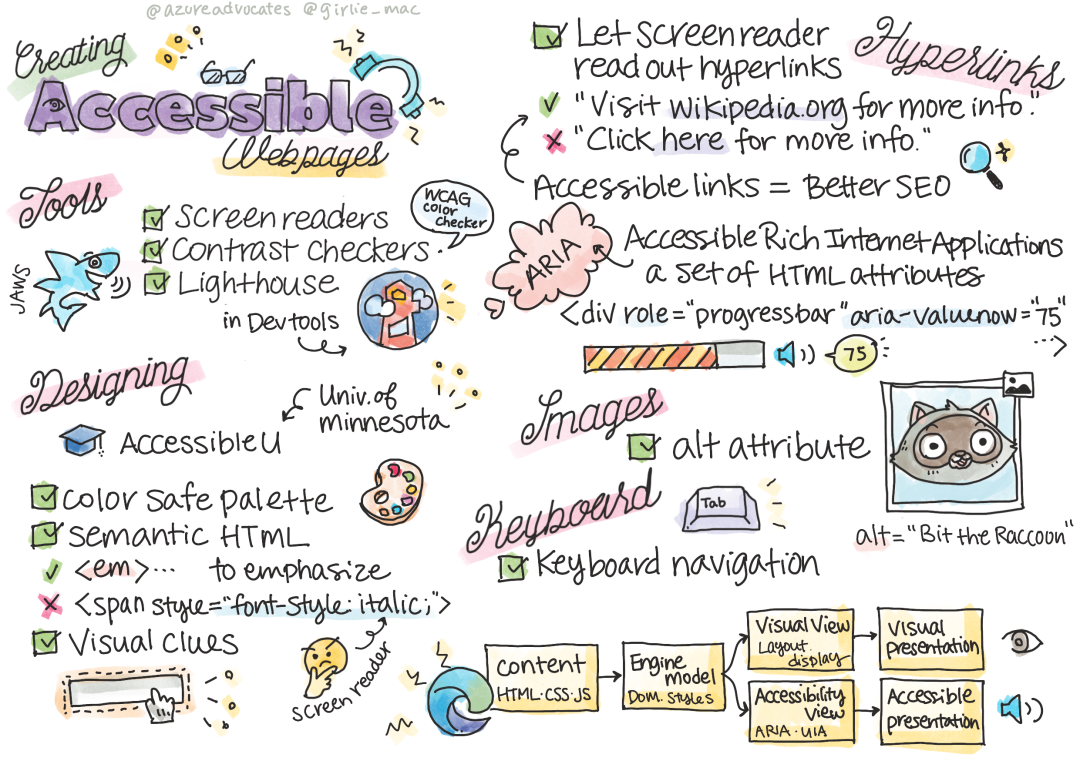 @azureadvocates @girlie_mac
Creating
Accessible
Webpages
Tools
Screen readers
Contrast checkers
Lighthouse
in Devtools
WCAG
color
checker
JAWS
Designing
Univ. of
minnesota
Accessible U
color safe palette
Semantic HTML
<em>... to emphasize
<span style="font-style: italic;">
Visual Clues
screen reader
Hyperlinks
Let screen reader
read out hyperlinks
"Visit wikipedia.org for more info."
"Click here for more info."
Accessible links = Better SEO
ARIA
Accessible Rich Internet Applications
a set of HTML attributes
<div role="progressbar" aria-valuenow="75"
...>
75
Images
alt attribute
alt="Bit the Raccoon"
Keyboard
Tab
Keyboard navigation
content
HTML・CSS・JS
Engine
model
Dom. Styles
Visual View
Layout.
display
Visual
presentation
Accessibility
view
ARIA・UIA
Accessible
presentation